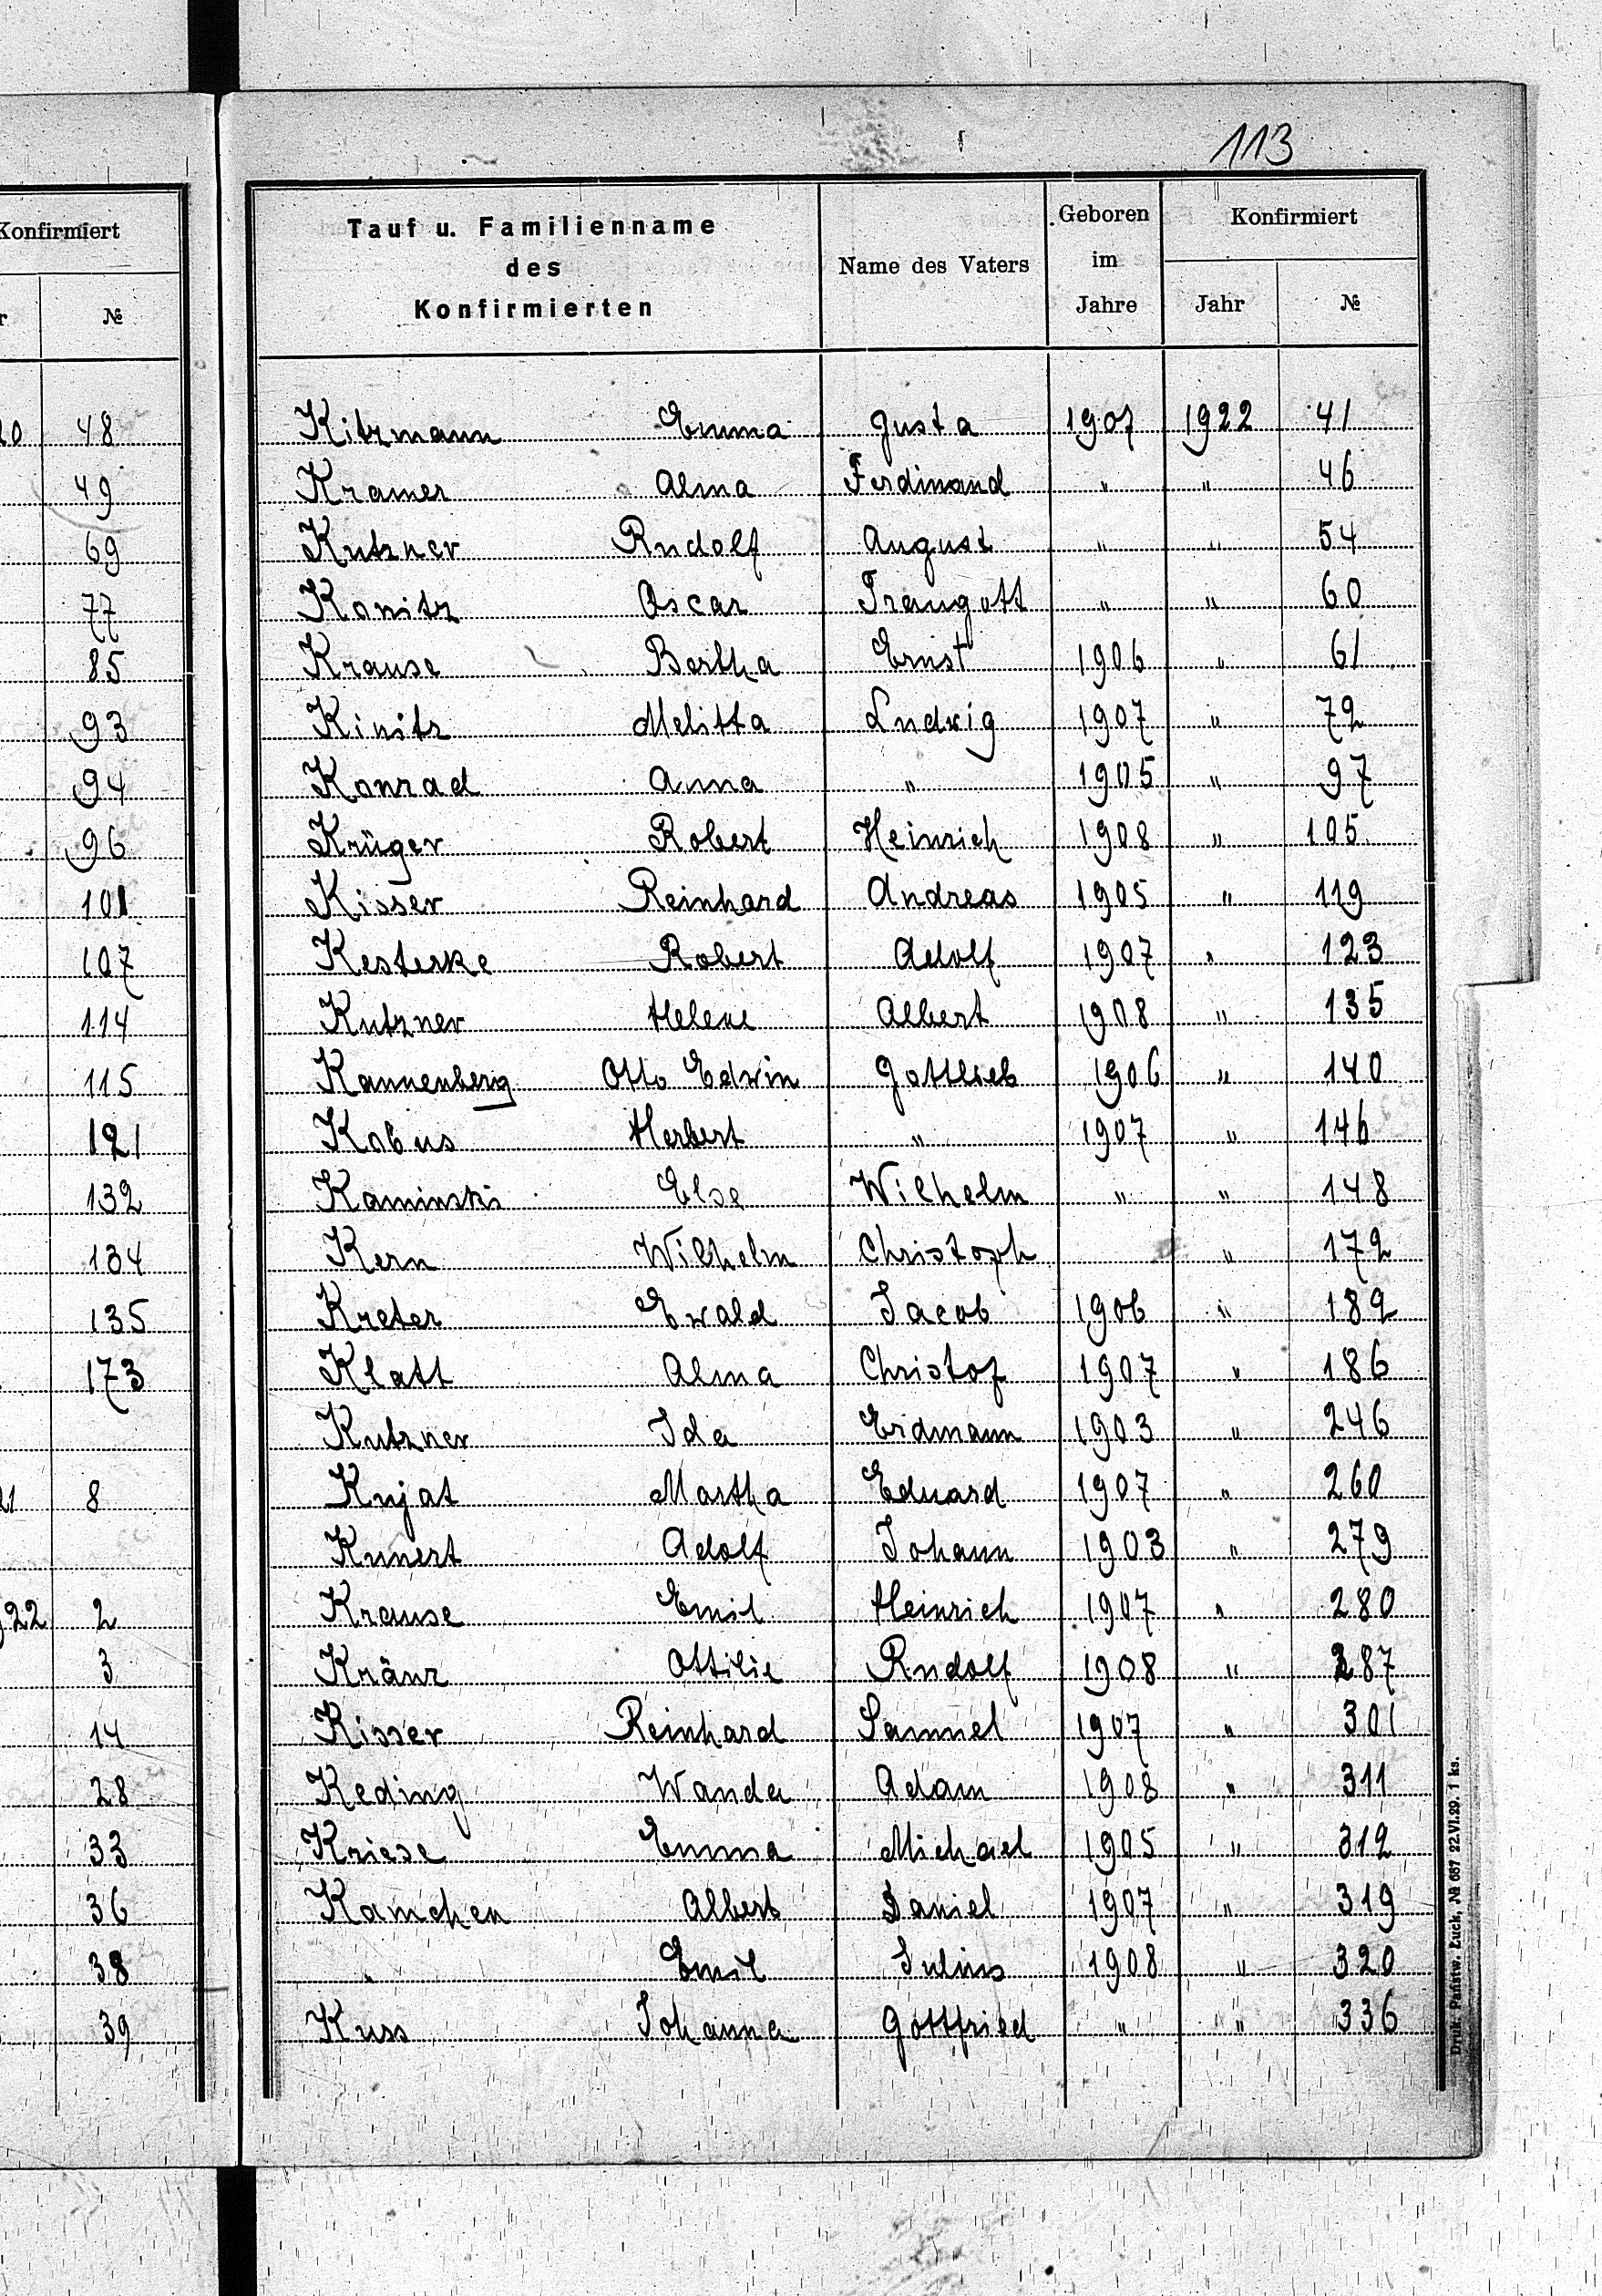 113
Konfirmiert
№
48
49
69
77
85
93
94
96
101
107
114
115
121
132
134
135
173
8
22 2
3
14
28
33
36
38
39
Tauf u. Familienname
des
Konfirmierten
Name des Vaters
Geboren
im
Jahre
Konfirmiert
Jahr №
Kitzmann Emma Gusta 1907 1922 41
Kramer Alma Ferdinand " " 46
Kutzner Rudolf August " " 54
Konitz Oscar Traugott " " 60
Krause Bertha Ernst 1906 " 61
Kinitz Melitta Ludwig 1907 " 72
Konrad Anna " 1905 " 97
Krüger Robert Heinrich 1908 " 105
Kisser Reinhard Andreas 1905 " 119
Kesterke Robert Adolf 1907 " 123
Kutzner Helene Albert 1908 " 135
Kannenberg Otto Edwin Gottlieb 1906 " 140
Kobus Herbert " 1907 " 146
Kaminski Else Wilhelm " " 148
Kern Wilhelm Christoph " 172
Kreter Ewald Jacob 1906 " 182
Klatt Alma Christof 1907 " 186
Kutzner Ida Erdmann 1903 " 246
Kujat Martha Eduard 1907 " 260
Kunert Adolf Johann 1903 " 279
Krause Emil Heinrich 1907 " 280
Kränz Ottilie Rudolf 1908 " 287
Kisser Reinhard Samuel 1907 " 301
Keding Wanda Adam 1908 " 311
Kriese Emma Michael 1905 " 312
Kamchen Albert Daniel 1907 " 319
" Emil Julius 1908 " 320
Kuss Johanna Gottfried " " 336
Druk. Państw. Łuck, № 687 22.VI.29. 1 ks.